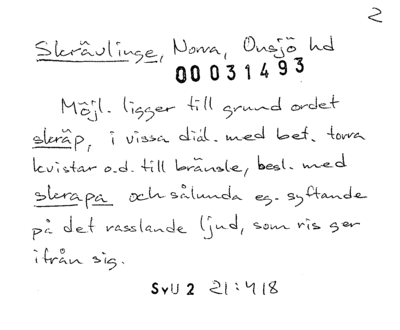 2
Skrävlinge, Norra, Onsjö hd
00031493
Möjl. ligger till grund ordet
skräp, i vissa dial. med bet. torra
kvistar o.d. till bränsle, besl. med
skrapa och sålunda eg. syftande
på det rasslande ljud, som ris ger
ifrån sig.
SvU 2 21:418